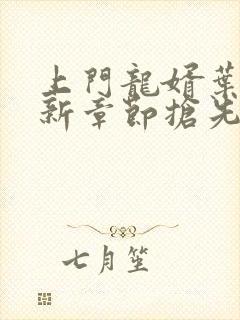 上門龍婿葉
新章節搶先
七月笙